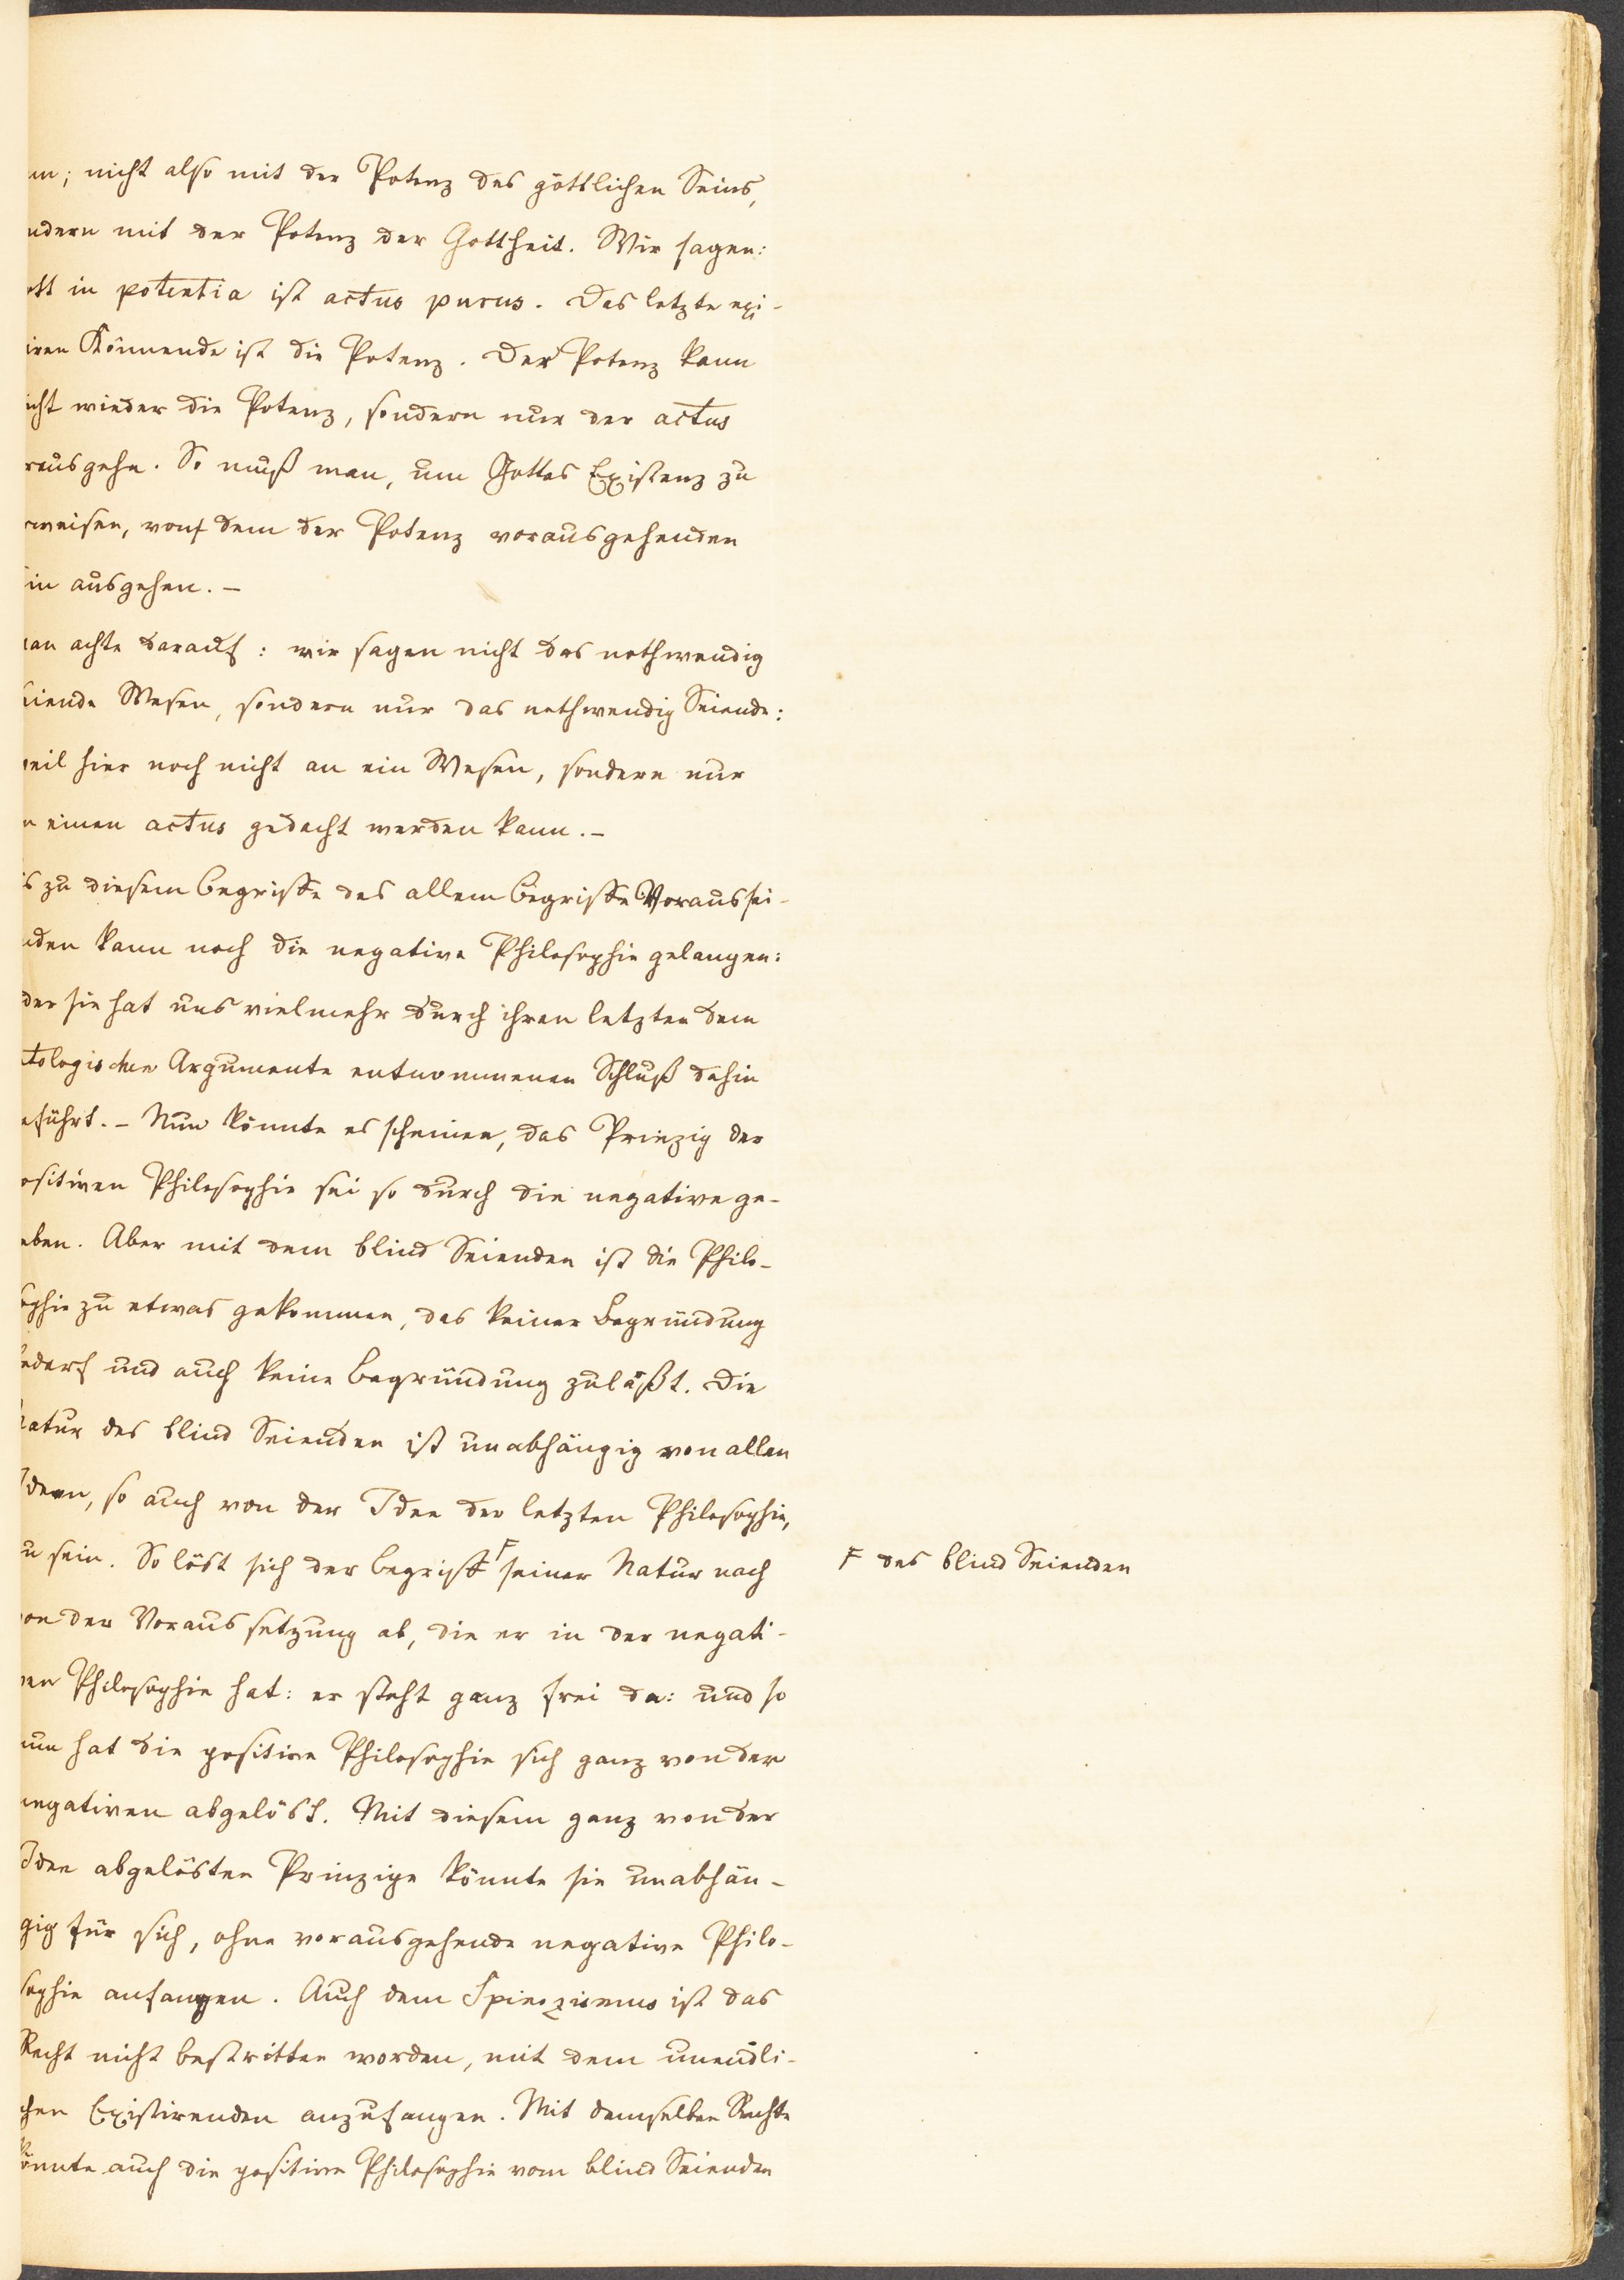 nn; nicht also mit der Potenz des göttlichen Seins,
ndern mit der Potenz der Gottheit. Wir sagen:
ott in potentia ist actus purus. Das letzte exi-
iren Könnende ist die Potenz. Der Potenz kann
icht wieder die Potenz, sondern nur der actus
rausgehn. So muß man, um Gottes Existenz zu
rweisen, von dem der Potenz vorausgehenden
in ausgehen. –
an achte darauf: wir sagen nicht das nothwendig
eiende Wesen, sondern nur das nothwendig Seiende:
eil hier noch nicht an ein Wesen, sondern nur
n einen actus gedacht werden kann. –
is zu diesem Begriffe des allem Begriffe Voraussei-
nden kann noch die negative Philosophie gelangen:
der sie hat uns vielmehr durch ihren letzten dem
tologischen Argumente entnommenen Schluß dahin
eführt. – Nun könnte es scheinen, das Prinzip der
ositiven Philosophie sei so durch die negative ge-
eben. Aber mit dem blind Seienden ist die Philo-
ophie zu etwas gekommen, das keiner Begründung
edarf und auch keine Begründung zuläßt. Die
Natur des blind Seienden ist unabhängig von allen
Ideen, so auch von der Idee der letzten Philosophie,
u sein. So löst sich der Begriff F seiner Natur nach
on der Voraussetzung ab, die er in der negati-
ven Philosophie hat: er steht ganz frei da: und so
nun hat die positive Philosophie sich ganz von der
negativen abgelöst. Mit diesem ganz von der
Idee abgelösten Prinzipe könnte sie unabhän-
gig für sich, ohne vorausgehende negative Philo-
sophie anfangen. Auch dem Spinozismus ist das
Recht nicht bestritten worden, mit dem unendli-
chen Existirenden anzufangen. Mit demselben Rechte
könnte auch die positive Philosophie vom blind Seienden
F des blind Seienden